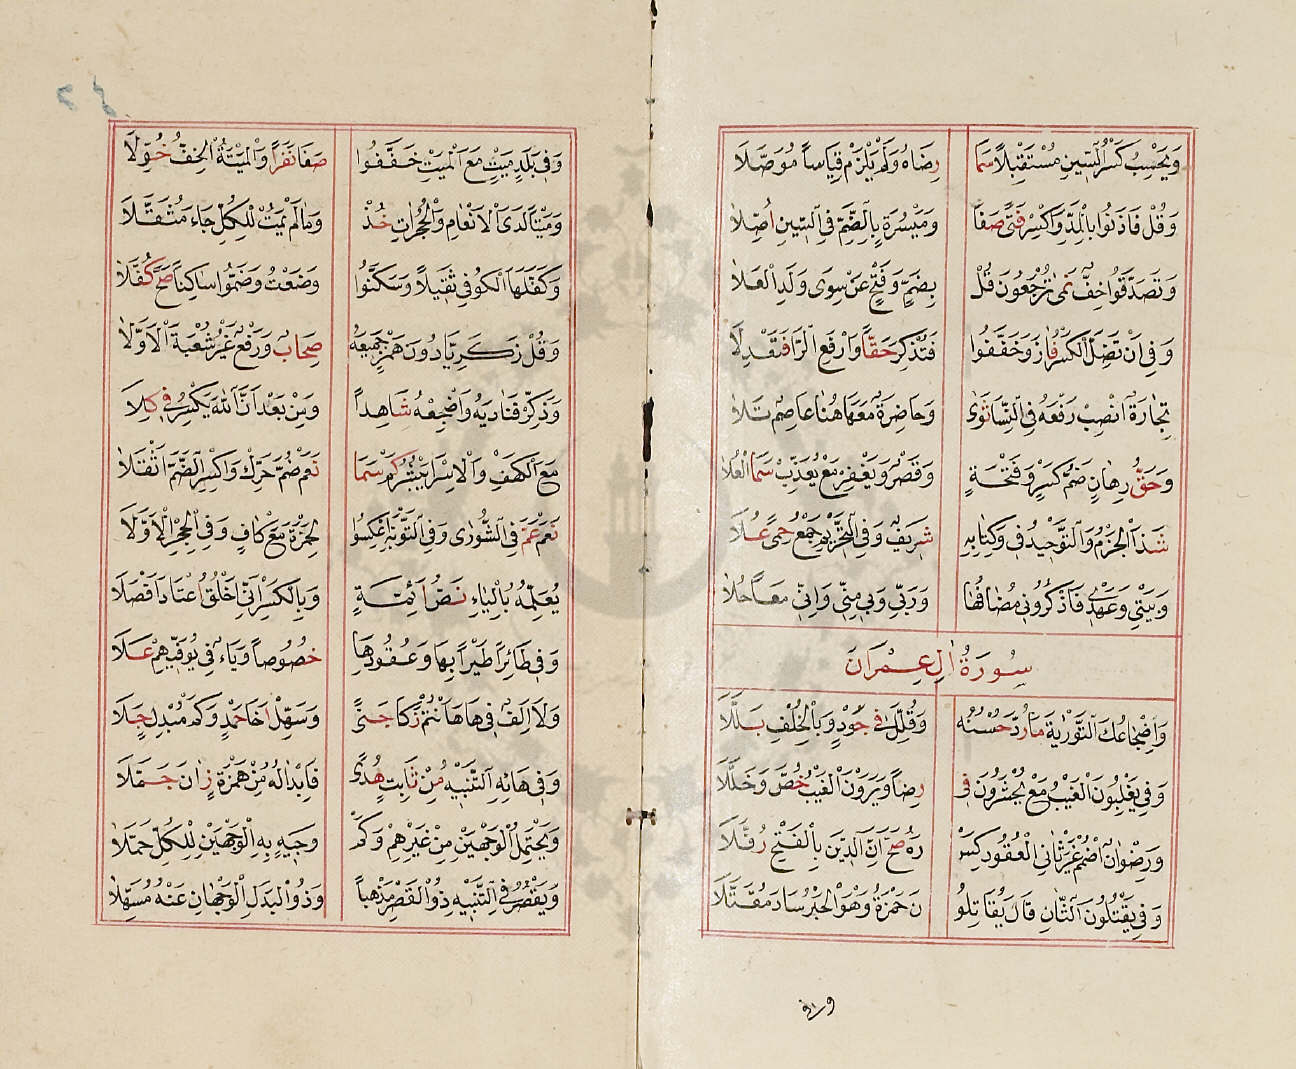 وَيَحْسِبُ كَسْرُ السِّينِ مُسْتَقْبِلًا سَمَا رِضَاهُ وَلَمْ يَلْزَمْ قِيَاساً مُوَصَّلَا
وَقُلْ فَاذَنُوا بِالْمَدِّ وَاكْسِرْ فَتًى صَفَا وَمَيْسُرَةٍ بِالضَّمِّ فِي السِّينِ اُصِّلَا
وَتَصَدَّقُوا خِفٌّ نَمَى تُرْجَعُونَ قُلْ بِضَمٍّ وَفَتْحٍ عَنْ سِوَى وَلَدِ الْعَلَا
وَفِي اَنْ تَضِلَّ الْكَسْرُ فَازَ وَخَفَّفُوا فَتُذْكِرَ حَقًّا وَارْفَعِ الرَّا فَتَعْدِلَا
تِجَارَةٌ انْصِبْ رَفْعَهُ فِي النِّسَا ثَوَى وَحَاضِرَةٌ مَعْهَا هُنَا عَاصِمٌ تَلَا
وَحَقُّ رِهَانٍ ضَمُّ كَسْرٍ وَفَتْحَةٍ وَقَصْرٌ وَيَغْفِرْ مَعْ يُعَذِّبْ سَمَا الْعُلَا
شَذَا الْجَزْمِ وَالتَّوْحِيدُ فِي وَكِتَابِهِ شَرِيفٌ وَفِي التَّحْرِيمِ جَمْعُ حِمًى عَلَا
وَبَيْتِي وَعَهْدِي فَاذْكُرُونِي مُضَافُهَا وَرَبِّي وَبِي مِنِّي وَاِنِّي مَعًا حُلَا
سُورَةُ اٰلِ عِمْرَانَ
وَاِضْجَاعُكَ التَّوْرٰيةَ مَا رُدَّ حُسْنُهُ وَقُلِّلَ فِي جَوْدٍ وَبِالْخُلْفِ بَلَّلَا
وَفِي يَغْلِبُونَ الْغَيْبُ مَعْ يُحْشَرُونَ فِي رِضًا وَيَرَوْنَ الْغَيْبُ خُصَّ وَخَلَّلَا
وَرِضْوَانٌ اضْمُمْ غَيْرَ ثَانِي الْعُقُودِ كَسْ رَهُ صَحَّ اَنَّ الدِّينَ بِالْفَتْحِ رُفِّلَا
وَفِي يَقْتُلُونَ الثَّانِ قَالَ يُقَاتِلُو نَ حَمْزَةُ وَهُوَ الْحَبْرُ سَادَ مُقَتَّلَا
وفي
وَفِي بَلَدٍ مَيْتٍ مَعَ الْمَيْتِ خَفَّفُوا صَفَا نَفَراً وَالْمَيْتَةُ الْخِفُّ خُوِّلَا
وَمَيْتًا لَدَى الْاَنْعَامِ وَالْحُجُرَاتِ خُذْ وَمَا لَمْ يَمُتْ لِلْكُلِّ جَاءَ مُثَقَّلَا
وَكَفَّلَهَا الْكُوفِي ثَقِيلاً وَسَكَّنُوا وَضَعْتُ وَضَمُّوا سَاكِناً صَحَّ كُفَّلَا
وَقُلْ زَكَرِيَّا دُونَ هَمْزِ جَمِيعِهِ صِحَابٌ وَرَفْعٌ غَيْرُ شُعْبَةَ الْاَوَّلَا
وَذَكِّرْ فَنَادِيهِ وَاَضْجِعْهُ شَاهِداً وَمِنْ بَعْدُ اَنَّ اللّٰهَ يُكْسَرُ فِي كِلَا
مَعَ الْكَهْفِ وَالْاِسْرَا يَبْشُرُ كَمْ سَمَا نَعَمْ ضُمَّ حَرِّكْ وَاكْسِرِ الضَّمَّ اَثْقَلَا
نَعَمْ عَمَّ فِي الشُّورٰى وَفِي التَّوْبَةِ اعْكِسُوا لِحَمْزَةَ مَعْ كَافٍ وَفِي الْحِجْرِ الْاَوَّلَا
يُعَلِّمُهُ بِالْيَاءِ نَصُّ اَئِمَّةٍ وَبِالْكَسْرِ اَنِّي اَخْلُقُ اعْتَادَ اَفْصَلَا
وَفِي طَائِراً طَيْراً بِهَا وَعُقُودِهَا خُصُوصاً وَيَاءٌ فِي يُوَفِّيهِمُ عَلَا
وَلَا اَلِفٌ فِي هَا هَاَنْتُمْ زَكَا جَنًى وَسَهِّلْ اَخَا حَمْدٍ وَكَمْ مُبْدِلٍ جَلَا
وَفِي هَائِهِ التَّنْبِيهُ مِنْ ثَابِتٍ هُدًى فَاِبْدَالُهُ مِنْ هَمْزَةٍ زَانَ جَمَّلَا
وَيَحْتَمِلُ الْوَجْهَيْنِ مِنْ غَيْرِهِمْ وَكَمْ وَجِيهٍ بِهِ الْوَجْهَيْنِ لِلْكُلِّ حَمَّلَا
وَيَقْصُرُ فِي التَّنْبِيهِ ذُو الْقَصْرِ مَذْهَباً وَذُو الْبَدَلِ الْوَجْهَانِ عَنْهُ مُسَهِّلَا